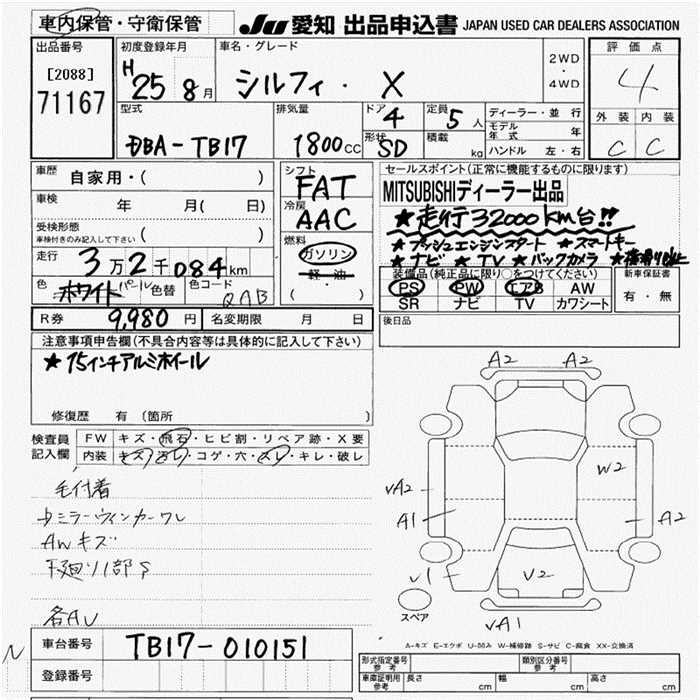 車内保管・守衛保管
JU 愛知 出品申込書 JAPAN USED CAR DEALERS ASSOCIATION
出品番号
[2088]
71167
初度登録年月
H 25 8月
車名・グレード
シルフィ・X
2WD
・
4WD
評価点
4
外装 内装
C C
型式
DBA-TB17
排気量
1800cc
ドア 4
形状 SD
定員 5人
積載 kg
ディーラー・並行
モデル年式 年
ハンドル 左・右
車歴 自家用・( )
車検 年 月( 日)
受検形態
車検付きのみ記入して下さい ( )
走行 3万2千084km
色 ホワイト パール 色替 色コード QAB
シフト
FAT
冷房
AAC
燃料
ガソリン
軽・油
( )
セールスポイント(正常に機能するものに限ります)
MITSUBISHIディーラー出品
★走行32000km台!!
★プッシュエンジンスタート ★スマートキー
★ナビ ★TV ★バックカメラ
装備品(純正品に限り○をつけてください)
PS PW エアB AW
SR ナビ TV カワシート
新車保証書
有・無
R券 9,980円 名変期限 月 日
後日品
注意事項申告欄(不具合内容等は具体的に記入して下さい)
★15インチアルミホイール
修復歴 有(箇所 )
検査員記入欄
FW キズ・飛石・ヒビ割・リペア跡・X要
内装 キズ・汚レ・コゲ・穴・スレ・キレ・破レ
毛付着
ミラーウィンカーワレ
AWキズ
下廻り1部S
各AU
A2 A2
W2
vA2
A1
A2
v1
V2
vA1
スペア
A-キズ E-エクボ U-凹み W-補修跡 S-サビ C-腐食 XX-交換済
N
車台番号 TB17-010151
登録番号
形式指定番号 参考
類別区分番号 参考
車庫証明用 参考 長さ cm 幅 cm 高さ cm